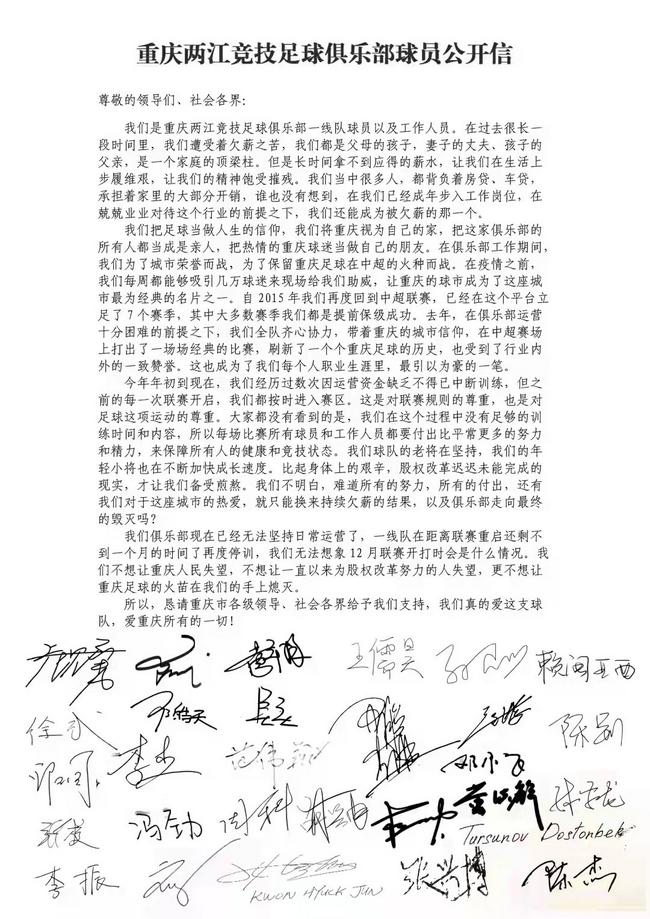 重庆两江竞技足球俱乐部球员公开信
尊敬的领导们、社会各界:
我们是重庆两江竞技足球俱乐部一线队球员以及工作人员。在过去很长一
段时间里,我们遭受着欠薪之苦,我们都是父母的孩子,妻子的丈夫、孩子的
父亲,是一个家庭的顶梁柱。但是长时间拿不到应得的薪水,让我们在生活上
步履维艰,让我们的精神饱受摧残。我们当中很多人,都背负着房贷、车贷,
承担着家里的大部分开销,谁也没有想到,在我们已经成年步入工作岗位,在
兢兢业业对待这个行业的前提之下,我们还能成为被欠薪的那一个。
我们把足球当做人生的信仰,我们将重庆视为自己的家,把这家俱乐部的
所有人都当成是亲人,把热情的重庆球迷当做自己的朋友。在俱乐部工作期间,
我们为了城市荣誉而战,为了保留重庆足球在中超的火种而战。在疫情之前,
我们每周都能够吸引几万球迷来现场给我们助威,让重庆的球市成为了这座城
市最为经典的名片之一。自2015年我们再度回到中超联赛,已经在这个平台立
足了7个赛季,其中大多数赛季我们都是提前保级成功。去年,在俱乐部运营
十分困难的前提之下,我们全队齐心协力,带着重庆的城市信仰,在中超赛场
上打出了一场场经典的比赛,刷新了一个个重庆足球的历史,也受到了行业内
外的一致赞誉。这也成为了我们每个人职业生涯里,最引以为豪的一笔。
今年年初到现在,我们经历过数次因运营资金缺乏不得已中断训练,但之
前的每一次联赛开启,我们都按时进入赛区。这是对联赛规则的尊重,也是对
足球这项运动的尊重。大家都没有看到的是,我们在这个过程中没有足够的训
练时间和内容,所以每场比赛所有球员和工作人员都要付出比平常更多的努力
和精力,来保障所有人的健康和竞技状态。我们球队的老将在坚持,我们的年
轻小将也在不断加快成长速度。比起身体上的艰辛,股权改革迟迟未能完成的
现实,才让我们备受煎熬。我们不明白,难道所有的努力,所有的付出,还有
我们对于这座城市的热爱,就只能换来持续欠薪的结果,以及俱乐部走向最终
的毁灭吗?
我们俱乐部现在已经无法坚持日常运营了,一线队在距离联赛重启还剩不
到一个月的时间了再度停训,我们无法想象12月联赛开打时会是什么情况。我
们不想让重庆人民失望,不想让一直以来为股权改革努力的人失望,更不想让
重庆足球的火苗在我们的手上熄灭。
所以,恳请重庆市各级领导、社会各界给予我们支持,我们真的爱这支球
队,爱重庆所有的一切!
王儒昊
陈剧
邓小飞
冯劲 周科
Tursunov Dostonbek
李振 KWON HYUCK JUN 陈杰